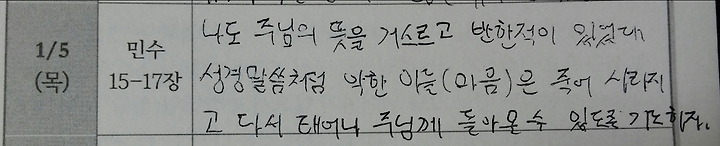 1/5
(목)
민수
15-17장
나도 주님의 뜻을 거스르고 반한적이 있었다
성경말씀처럼 악한 이들(마음)은 죽어 사라지
고 다시 태어나 주님께 돌아올 수 있도록 기도하자.